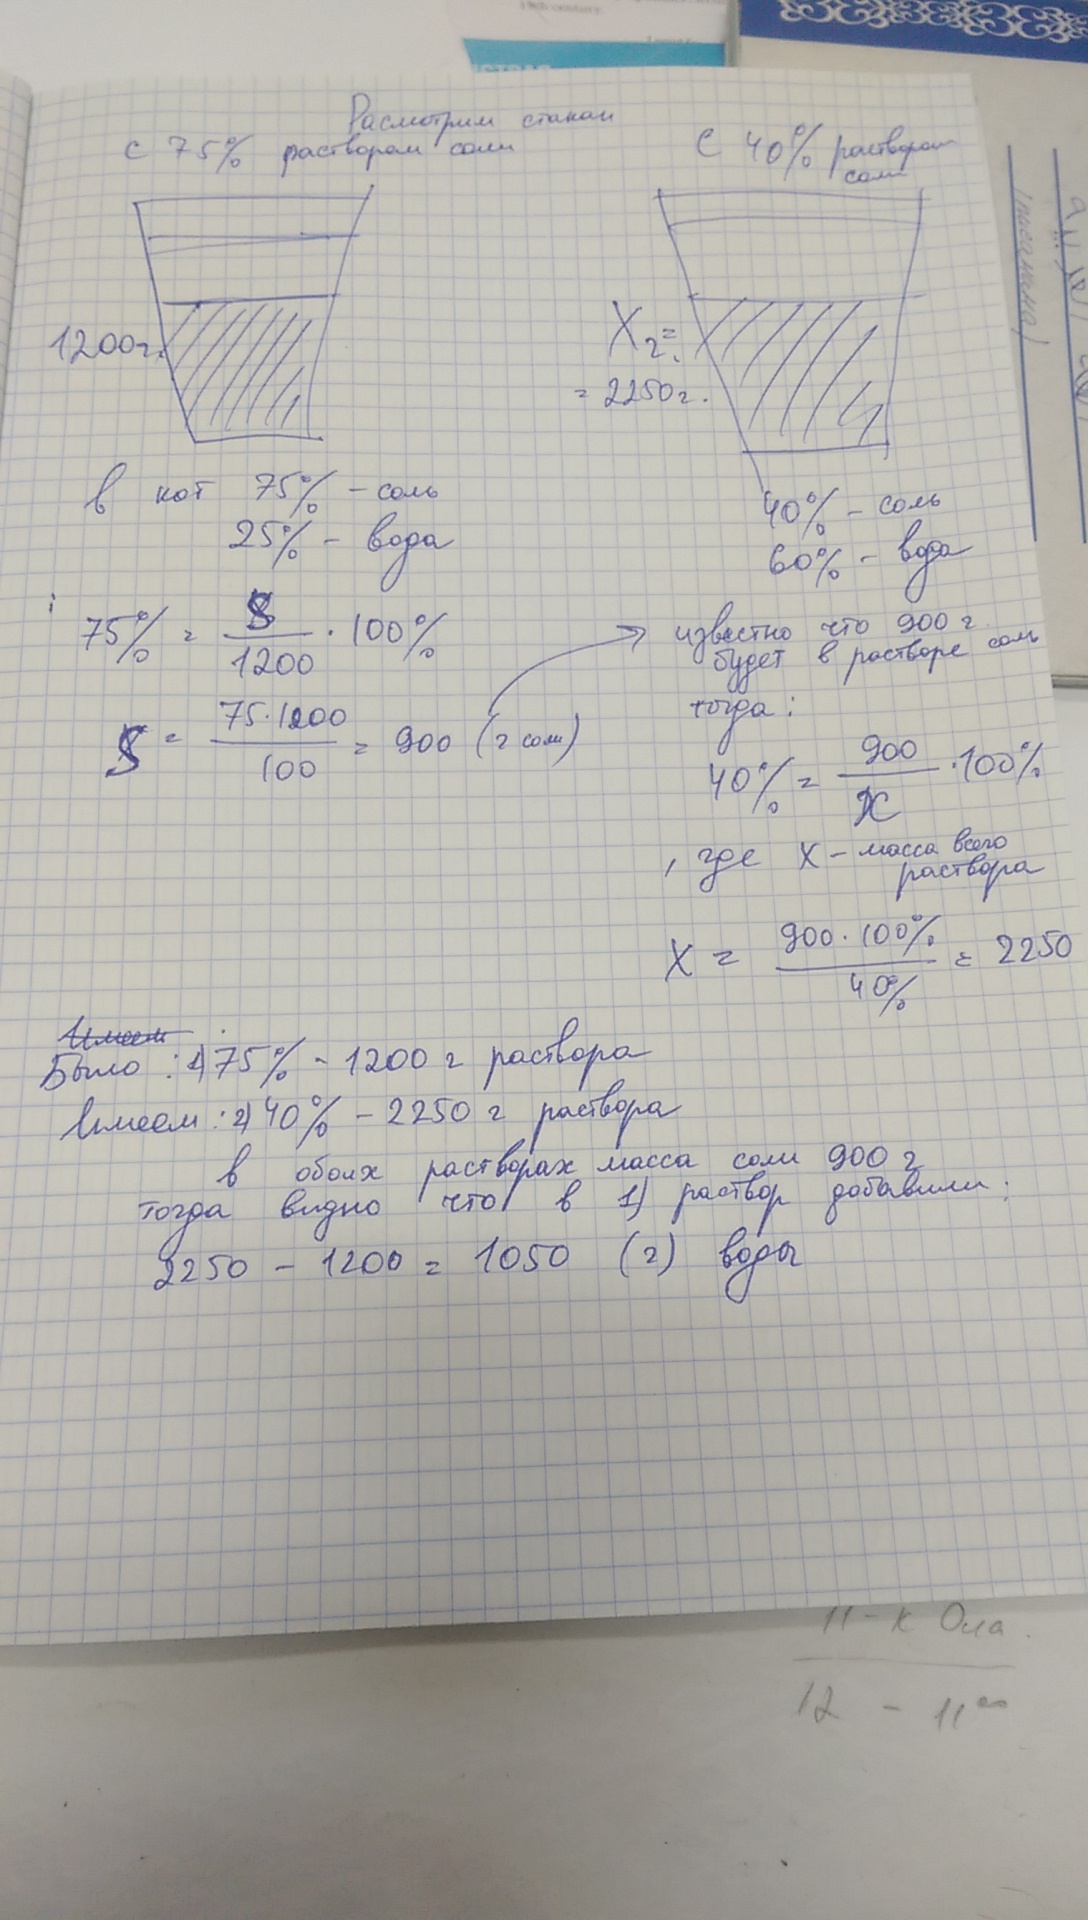 Расмотрим стакан
с 75% раствором соли
С 40% раствором
соли
1200г.
X₂ =
= 2250 г.
в кот 75% – соль
25% – вода
40% – соль
60% – вода
75% = S/1200 · 100%
S = 75·1200/100 = 900 (г соли)
известно что 900 г
будет в растворе соль
тогда:
40% = 900/x · 100%
, где X – масса всего
раствора
X = 900·100%/40% = 2250
Имеем
Было : 1) 75% – 1200 г раствора
Имеем : 2) 40% – 2250 г раствора
в обоих растворах масса соли 900 г
тогда видно что в 1) раствор добавили:
2250 – 1200 = 1050 (г) воды
11 - к Ола.
12 - 11⁰⁰